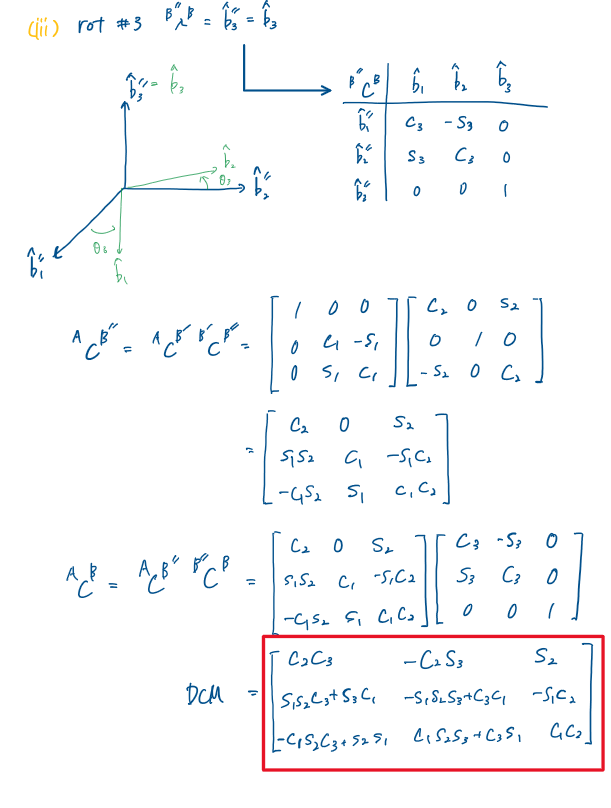 (iii) rot #3 ᴮ″λᴮ = b̂₃″ = b̂₃
b̂₃″ = b̂₃
ᴮ″Cᴮ b̂₁ b̂₂ b̂₃
b̂₁″ C₃ -S₃ 0
b̂₂″ S₃ C₃ 0
b̂₃″ 0 0 1
b̂₂
θ₃
b̂₂″
θ₃
b̂₁″
b̂₁
ᴬCᴮ″ = ᴬCᴮ′ ᴮ′Cᴮ″ = [1 0 0; 0 C₁ -S₁; 0 S₁ C₁] [C₂ 0 S₂; 0 1 0; -S₂ 0 C₂]
= [C₂ 0 S₂; S₁S₂ C₁ -S₁C₂; -C₁S₂ S₁ C₁C₂]
ᴬCᴮ = ᴬCᴮ″ ᴮ″Cᴮ = [C₂ 0 S₂; S₁S₂ C₁ -S₁C₂; -C₁S₂ S₁ C₁C₂] [C₃ -S₃ 0; S₃ C₃ 0; 0 0 1]
DCM = [C₂C₃ -C₂S₃ S₂; S₁S₂C₃+S₃C₁ -S₁S₂S₃+C₃C₁ -S₁C₂; -C₁S₂C₃+S₂S₁ C₁S₂S₃+C₃S₁ C₁C₂]